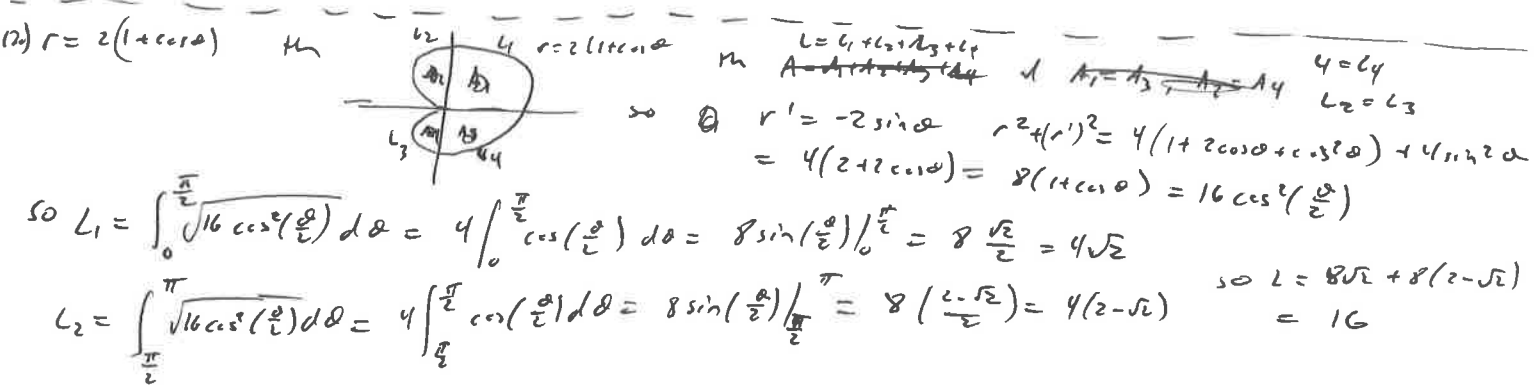 r = 2(1+cosθ) th r = 2(1+cosθ th L = L₁+L₂+L₃+L₄ L₁ = L₄
L₂ L₁ A = A₁+A₂+A₃+A₄ & A₁ = A₃, A₂ = A₄ L₂ = L₃
L₃ L₄ so r' = -2 sinθ r²+(r')² = 4(1+2cosθ+cos²θ)+4sin²θ
= 4(2+2cosθ) = 8(1+cosθ) = 16cos²(θ/2)
so L₁ = ∫₀^{π/2} √(16cos²(θ/2)) dθ = 4∫₀^{π/2} cos(θ/2) dθ = 8sin(θ/2)|₀^{π/2} = 8 √2/2 = 4√2
L₂ = ∫_{π/2}^{π} √(16cos²(θ/2)) dθ = 4∫_{π/2}^{π/2} cos(θ/2) dθ = 8sin(θ/2)|_{π/2}^{π} = 8((2-√2)/2) = 4(2-√2) so L = 8√2+8(2-√2)
= 16